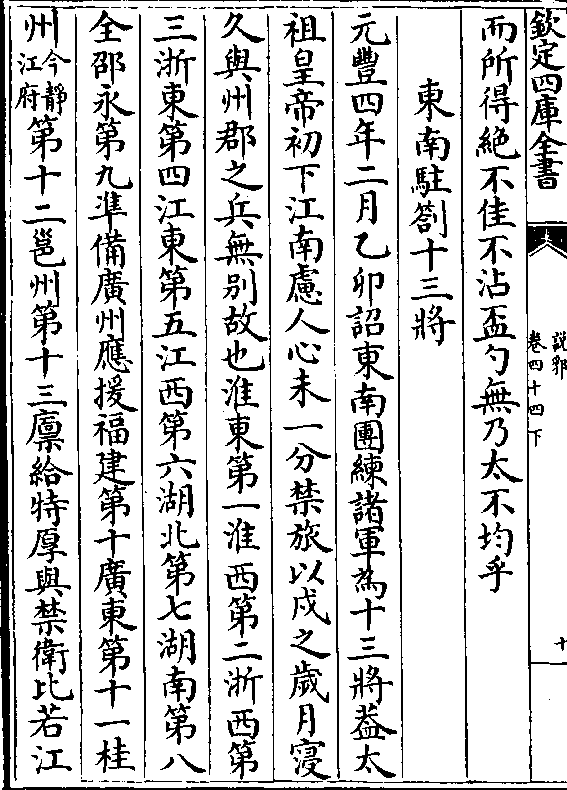 欽定四庫全書
說郛
卷四十四下
十
而所得絶不佳不沾盃勺無乃太不均乎
東南駐劄十三將
元豐四年二月乙卯詔東南團練諸軍為十三將葢太
祖皇帝初下江南慮人心未一分禁旅以戍之歲月寖
久與州郡之兵無别故也淮東第一淮西第二浙西第
三浙東第四江東第五江西第六湖北第七湖南第八
全邵永第九準備廣州應援福建第十廣東第十一桂
州今靜江府第十二邕州第十三廪給特厚與禁衛比若江